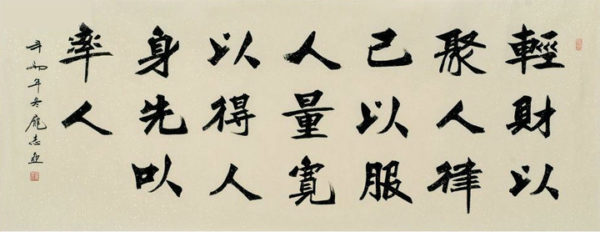 輕財以
聚人律
己以服
人量寬
以得人
身先以
率人
辛卯年冬龐志